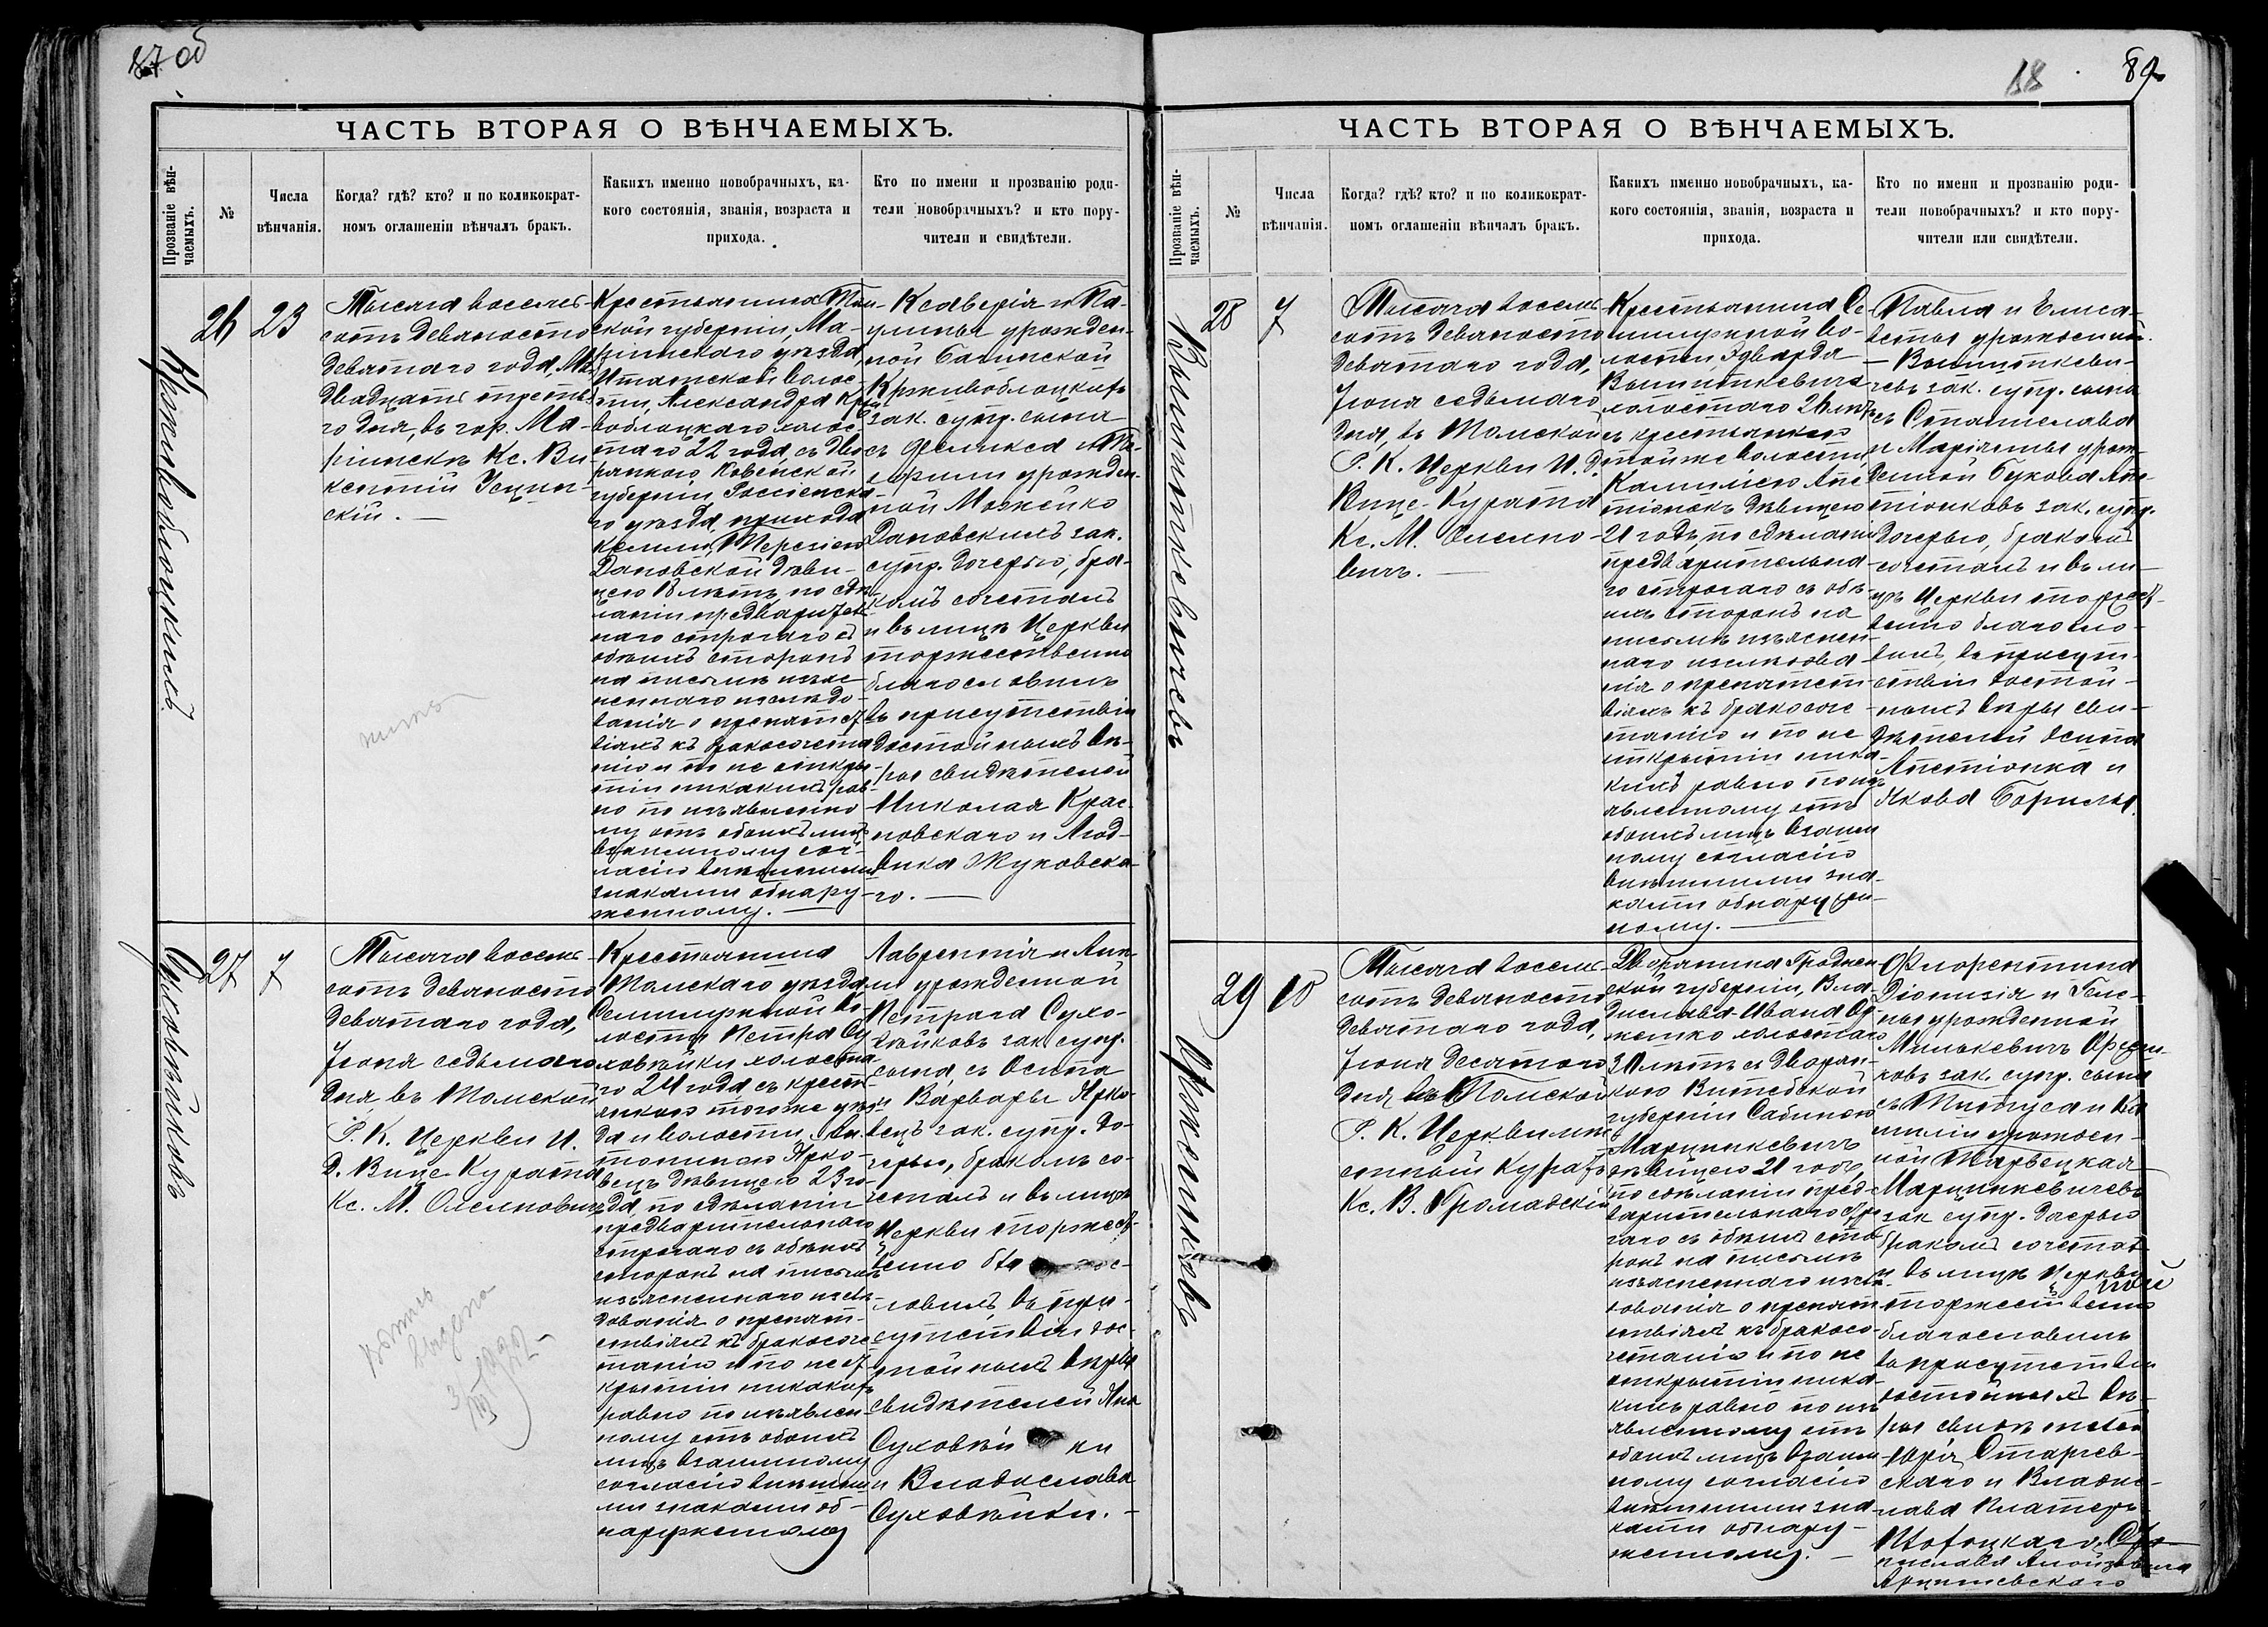 87 об
ЧАСТЬ ВТОРАЯ О ВѢНЧАЕМЫХЪ.
Прозваніе вѣн-
чаемыхъ.
№
Числа
вѣнчанія.
Когда? гдѣ? кто? и по коликократ-
номъ оглашеніи вѣнчалъ бракъ.
Какихъ именно новобрачныхъ, ка-
кого состоянія, званія, возраста и
прихода.
Кто по имени и прозванію роди-
тели новобрачныхъ? и кто пору-
чители и свидѣтели.
Крживоблоцкихъ.
26
23
Тысяча восемь-
сотъ девяносто
девятаго года, Мая
двадцать третья-
го дня, въ гор. Ма-
ріинскѣ Кс. Ви-
кентій Усцин-
скій.
Крестьянина Том-
ской губерніи, Ма-
ріинскаго уѣзда
Итатской волос-
ти, Александра Кржи-
воблоцкаго холос-
таго 22 года съ Дво-
рянкою Ковенской
губерніи Россіенска-
го уѣзда прихода
Терезіею
Дановской дѣви-
цею лѣтъ, по сдѣ-
ланіи предварител-
наго строгаго съ
обѣихъ сторонъ
на письмѣ изъяс-
неннаго изслѣдо-
ванія о препятст-
віяхъ къ бракосочета-
нію и по не откры-
тіи никакихъ рав-
но по изъявленно-
му отъ обоихъ лицъ
взаимному сог-
ласію внѣшними
знаками обнару-
женному.
Ксаверія и Па-
улины урожден-
ной Багинской
Крживоблоцкихъ
зак. супр. сына
съ Феликса и
урожден-
ной Можейко
Дановскихъ зак.
супр. дочерью, бра-
комъ сочеталъ
и въ лицѣ Церкви
торжественно
благословилъ
въ присутствіи
достойныхъ вѣ-
ры свидѣтелей
Николая Крас-
новскаго и Люд-
вика Жуковска-
го.
Суховѣйковъ
27
7
Тысяча восемь-
сотъ девяносто
девятаго года,
Іюня седьмаго
дня, въ Томской
Р. К. Церкви И.
д. Вице-Курата
Кс. М. Олехновичъ
Крестьянина
Томскаго уѣзда
Семилужной во-
лости Петра Су-
ховѣйки холоста-
го 24 года съ кресть-
янкою тогоже уѣз-
да и волости, Ан-
тониною Ярко-
вецъ дѣвицею 23 го-
да, по сдѣланіи
предварительнаго
строгаго съ обѣихъ
сторонъ на письмѣ
изъясненнаго изслѣ-
дованія о препят-
ствіяхъ къ бракосоче-
танію и по не от-
крытіи никакихъ
равно по изъявлен-
ному отъ обоихъ
лицъ взаимному
согласію внѣшни-
ми знаками об-
наруженному
Лаврентія и Анны
урожденной
Петрага Сухо-
вѣйковъ зак. супр.
сына, съ Осипа
и Варвары Ярко-
вецъ зак. супр. до-
черью, бракомъ со-
четалъ и въ лицѣ
Церкви торжест-
венно
ловилъ въ при-
сутствіи дос-
тойныхъ вѣры
свидѣтелей Яна
Суховѣйки
и Владислава
Суховѣйки.
1902
88
89
ЧАСТЬ ВТОРАЯ О ВѢНЧАЕМЫХЪ.
Прозваніе вѣн-
чаемыхъ.
№
Числа
вѣнчанія.
Когда? гдѣ? кто? и по коликократ-
номъ оглашеніи вѣнчалъ бракъ.
Какихъ именно новобрачныхъ, ка-
кого состоянія, званія, возраста и
прихода.
Кто по имени и прозванію роди-
тели новобрачныхъ? и кто пору-
чители или свидѣтели.
28
7
Тысяча восемь-
сотъ девяносто
девятаго года,
Іюня седьмаго
дня, въ Томской
Р. К. Церкви И. д.
Вице-Курата
Кс. М. Олехно-
вичъ.
Крестьянина Се-
милужной во-
лости, Эдварда
холостаго 26 лѣтъ
съ крестьянкою
тойже волости,
Камиліею Апе-
тіонокъ дѣвицею
21 года, по сдѣланіи
предварительна-
го строгаго съ обѣ-
ихъ сторонъ на
письмѣ изъяснен-
наго изслѣдова-
нія о препятст-
віяхъ къ бракосоче-
танію и по не
открытіи ника-
кихъ равно по изъ-
явленному отъ
обоихъ лицъ взаим-
ному согласію
внѣшними зна-
ками обнаружен-
ному.
Павла и Елиса-
веты урожденной
зак. супр. сына
съ Станислава
и Маріанны урож-
денной Букова Апе-
тіонковъ зак. супр.
дочерью, бракомъ
сочеталъ и въ ли-
цѣ Церкви торжест-
венно благосло-
вилъ, въ присут-
ствіи достой-
ныхъ вѣры сви-
дѣтелей Осипа
Апетіонка и
Якова
29
10
Тысяча восемь-
сотъ девяносто
девятаго года,
Іюня десятаго
дня въ Томской
Р. К. Церкви
Куратъ
Кс. В. Громадскій
Дворянина Гроднен-
ской губерніи, Вла-
дислава-Ивана
холостаго
30 лѣтъ съ дворян-
кою Витебской
губерніи Сабиною
Марцинкевичъ
дѣвицею 21 года,
по сдѣланіи пред-
варительнаго стро-
гаго съ обѣихъ сто-
ронъ на письмѣ
изъясненнаго изслѣ-
дованія о препят-
ствіяхъ къ бракосо-
четанію и по не
открытіи ника-
кихъ равно по изъ-
явленному отъ
обоихъ лицъ взаим-
ному согласію
внѣшними зна-
ками обнару-
женному.
Флорентина
Діонизія и Геле-
ны урожденной
Милькевичъ
зак. супр. сына
съ
урожден-
ной
Марцинкевичевъ
зак. супр. дочерью
бракомъ сочеталъ
и въ лицѣ Церкви
торжественно
благословилъ
въ присутствіи
достойныхъ вѣ-
ры свидѣтелей
скаго и Владис-
лава